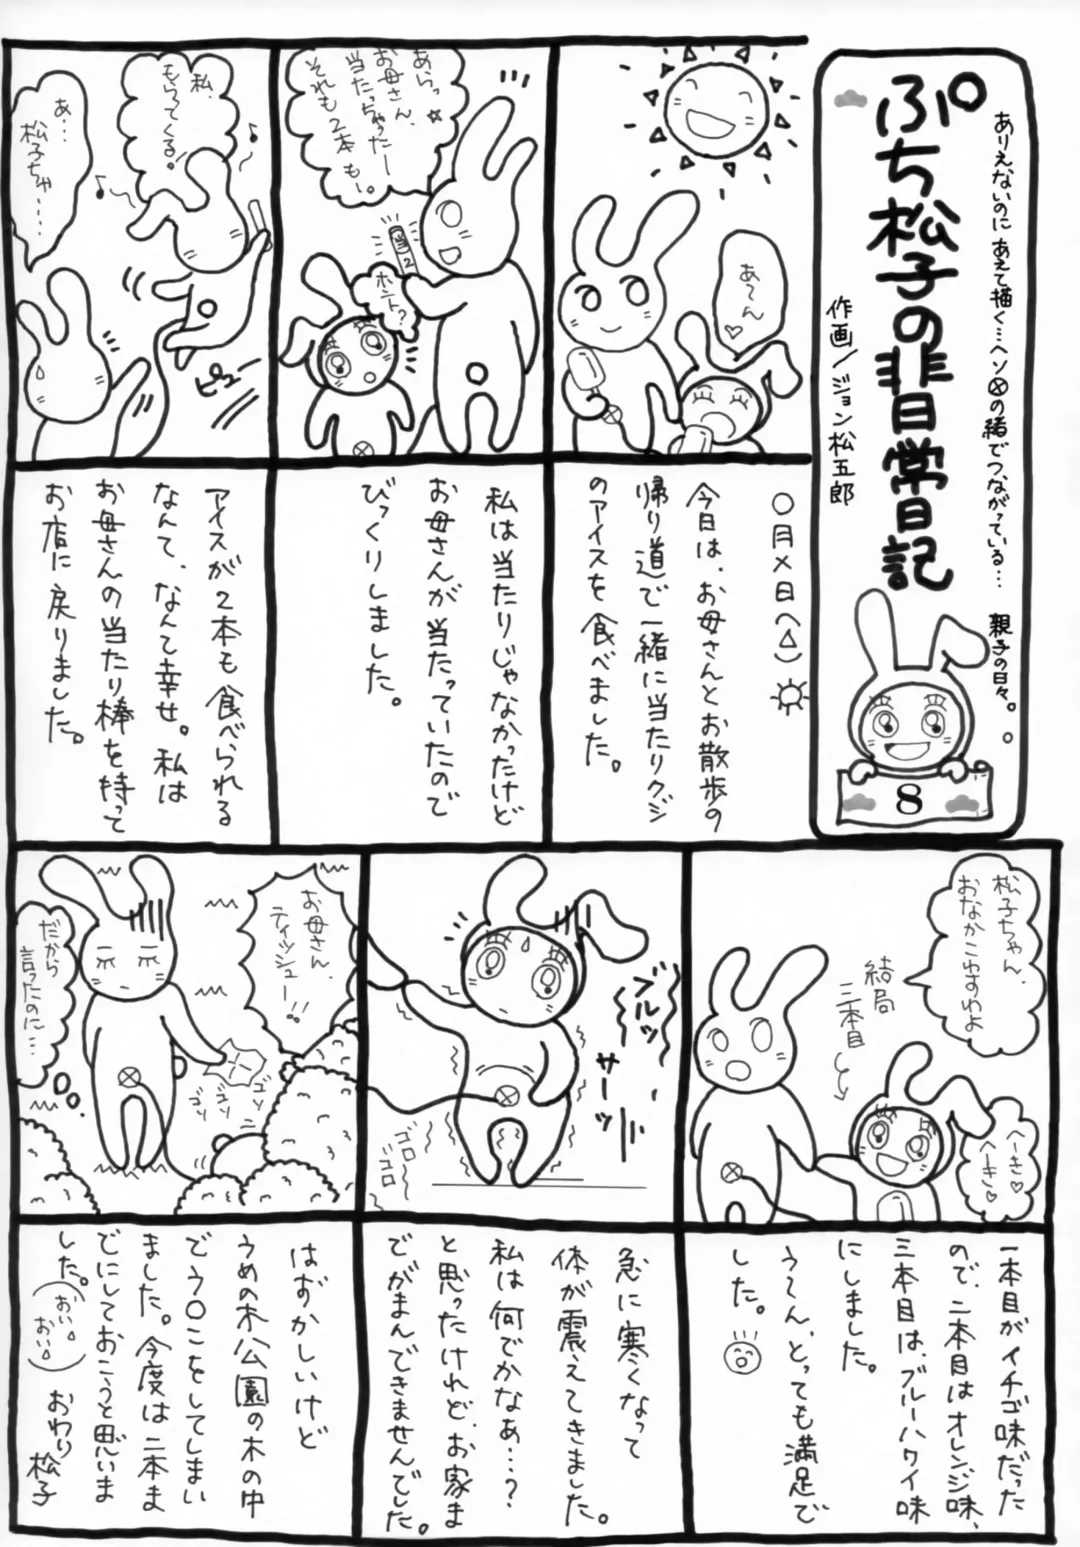 ありえないのに あえて描く…ヘソの緒でつながっている… 親子の日々。
ぷち松子の非日常日記
作画/ジョン松五郎
8
あ〜ん♡
○月×日(△)
今日は、お母さんとお散歩の
帰り道で一緒に当たりクジ
のアイスを食べました。
あらっ☆
お母さん、
当たっちゃたー
それも2本も〜。
当2
ホント?
私は当たりじゃなかったけど
お母さんが当たっていたので
びっくりしました。
私、
もらってくる。
あ…
松子ちゃ……
ピュー
アイスが2本も食べられる
なんて、なんて幸せ。私は
お母さんの当たり棒を持って
お店に戻りました。
松子ちゃん、
おなかこわすわよ
結局
三本目
へーき♡
へーき♡
一本目がイチゴ味だった
ので、二本目はオレンジ味、
三本目は、ブルーハワイ味
にしました。
う〜ん、とっても満足で
した。
ブルッ
サーッ
ゴロゴロ
ゴロ
急に寒くなって
体が震えてきました。
私は何でかなぁ…?
と思ったけれど、お家ま
でがまんできませんでした。
お母さん、
ティッシュー!!
だから
言ったのに…
ゴソ
ゴソ
ゴソ
はずかしいけど
うめの木公園の木の中
でう○こをしてしまい
ました。今度は二本ま
でにしておこうと思いま
した。
(おい。おい。)
おわり
松子